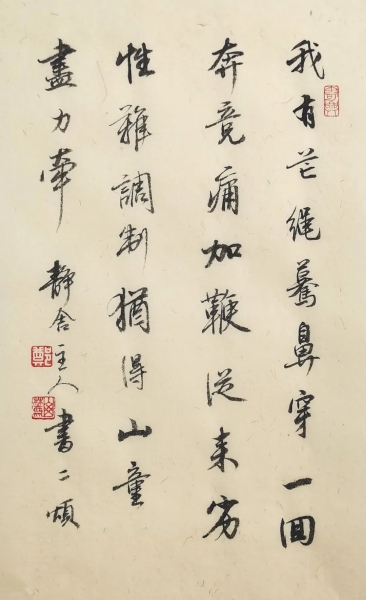 我有芒繩驀鼻穿一回
奔竟痛加鞭從来劣
性難調制猶得山童
盡力牽 靜舍主人書二頌